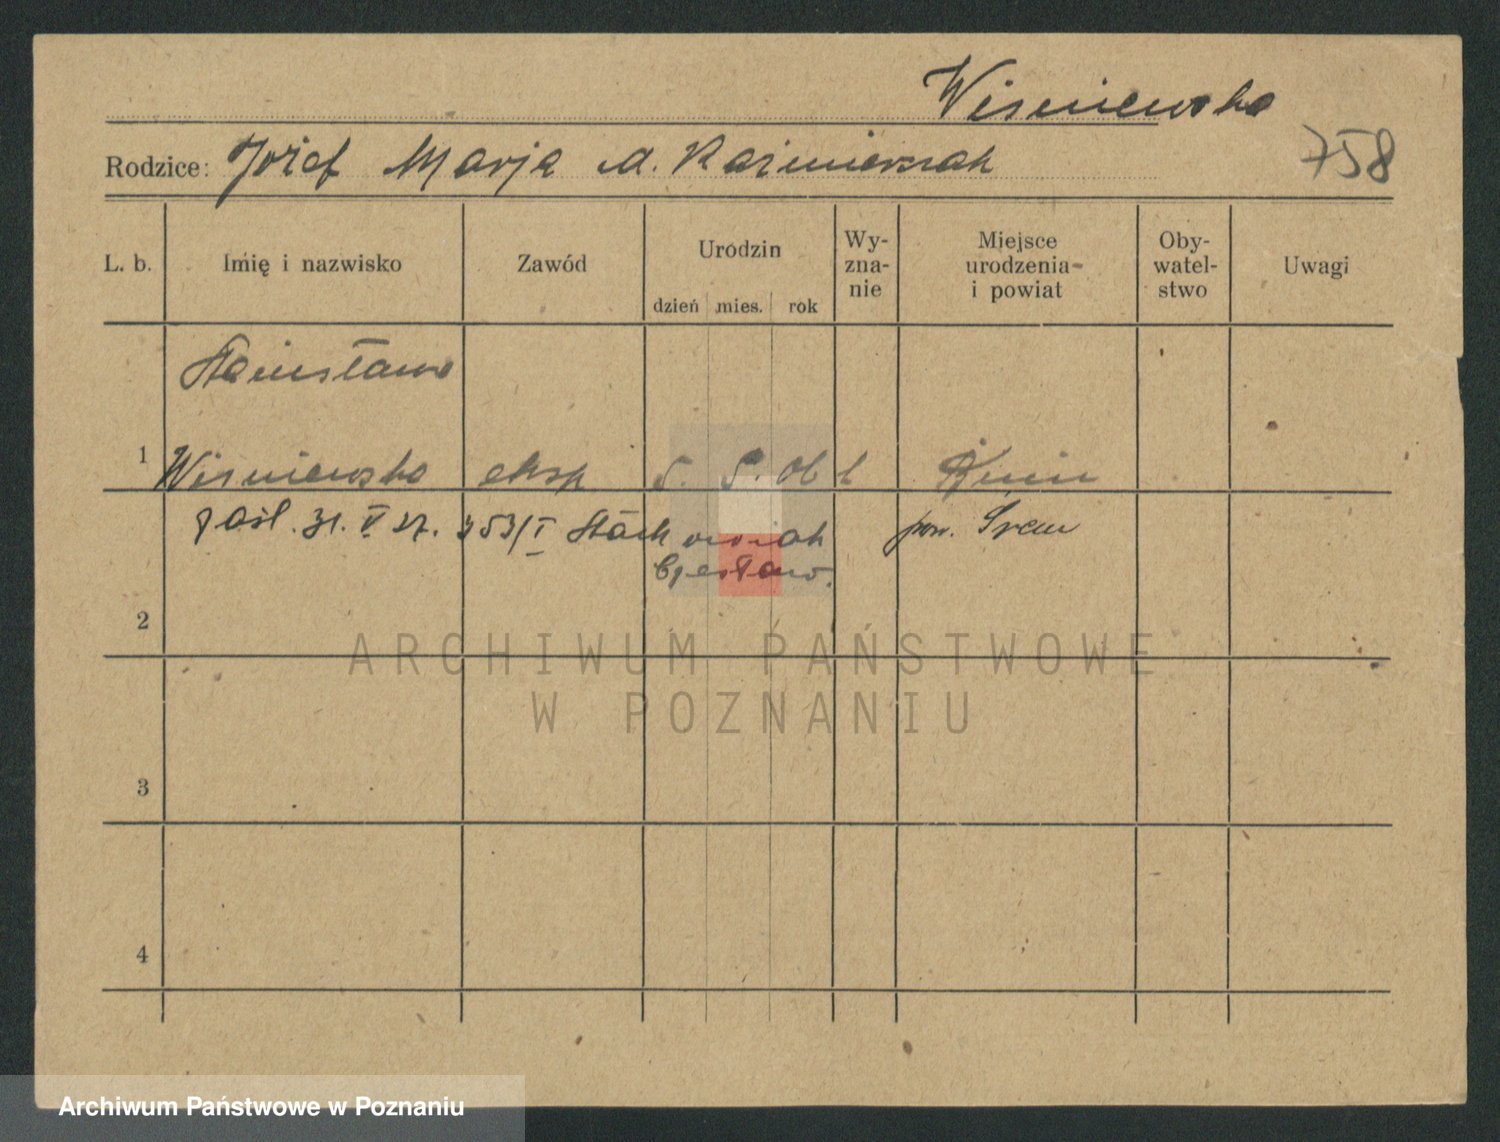 Wiśniewska
Rodzice: Józef Marja d. Kaźmierczak
758
L. b. Imię i nazwisko Zawód Urodzin dzień mies. rok Wy-zna-nie Miejsce urodzenia i powiat Oby-watel-stwo Uwagi
Stanisława
1 Wiśniewska eksp 5. 5. 06
pow. Śrem
zaśl. 31. V 27. 253/I Stachowiak
Czesław.
2
ARCHIWUM PAŃSTWOWE
W POZNANIU
3
4
Archiwum Państwowe w Poznaniu